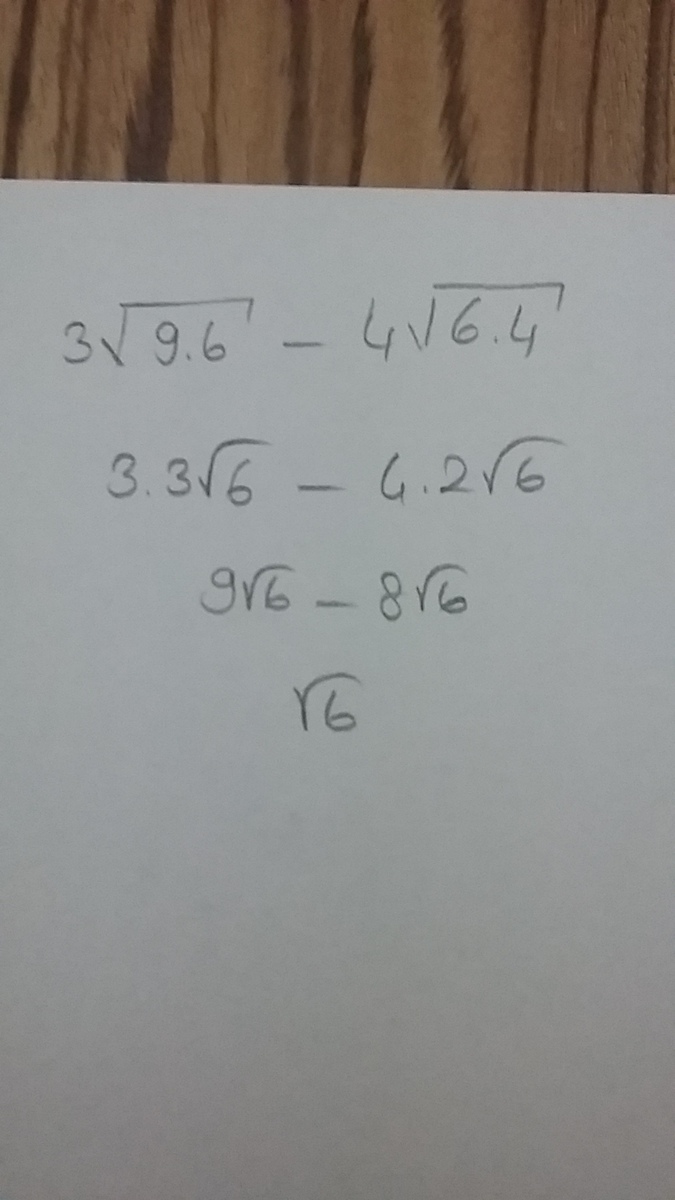 3√9.6 – 4√6.4
3.3√6 – 4.2√6
9√6 – 8√6
√6